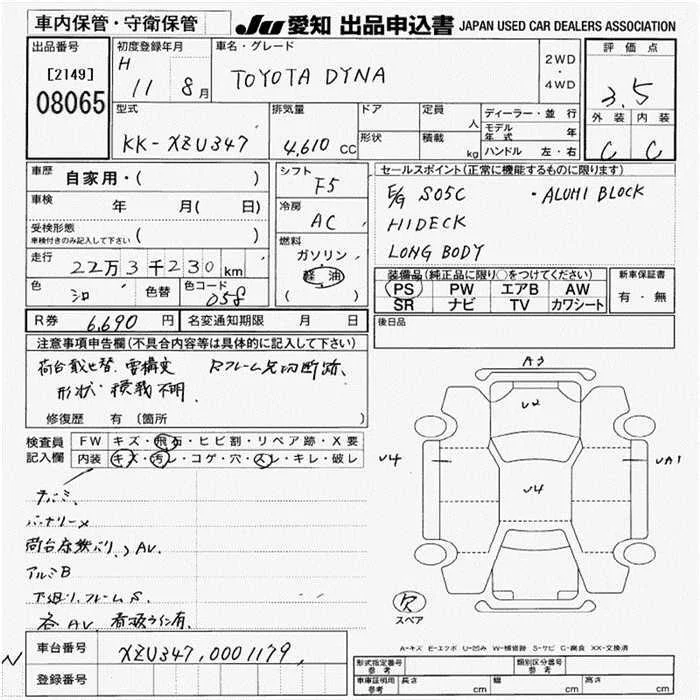 車内保管・守衛保管
JU 愛知 出品申込書 JAPAN USED CAR DEALERS ASSOCIATION
出品番号
[2149]
08065
初度登録年月
H 11 8月
車名・グレード
TOYOTA DYNA
2WD
・
4WD
評価点
3.5
外装 内装
C C
型式
KK-XZU347
排気量
4,610 CC
ドア
形状
定員
人
積載
kg
ディーラー・並行
モデル年式 年
ハンドル 左・右
車歴 自家用・( )
車検 年 月(日 )
受検形態
車検付きのみ記入して下さい ( )
走行 22万3千230km
色 シロ 色替 色コード 058
シフト F5
冷房 AC
燃料
ガソリン
軽油
( )
セールスポイント(正常に機能するものに限ります)
E/G S05C ・ALUMI BLOCK
HIDECK
LONG BODY
装備品(純正品に限り○をつけてください)
PS PW エアB AW
SR ナビ TV カワシート
新車保証書
有・無
後日品
R券 6,690円 名変通知期限 月 日
注意事項申告欄(不具合内容等は具体的に記入して下さい)
荷台載せ替
形状・積載不明
修復歴 有〔箇所 〕
検査員
記入欄
FW キズ・飛石・ヒビ割・リペア跡・X要
内装 キズ・汚レ・コゲ・穴・スレ・キレ・破レ
バッテリーメ
アルミB
下廻リ.フレームS.
各AV
N
車台番号 XZU347,0001179,
登録番号
A3
U2
U4
U4
UA1
欠
スペア
A-キズ E-エクボ U-凹み W-補修跡 S-サビ C-腐食 XX-交換済
形式指定番号
参考
類別区分番号
参考
車庫証明用
参考
長さ cm 幅 cm 高さ cm